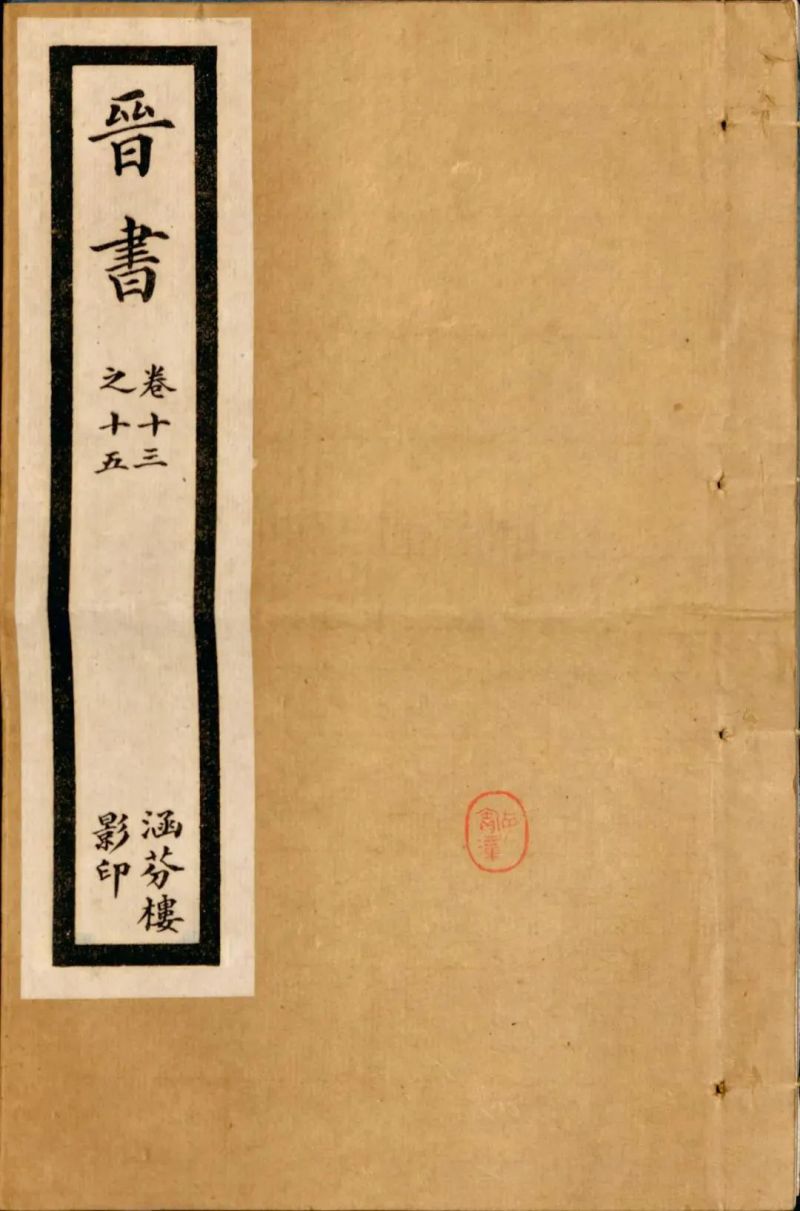 晉書
卷十三
之十五
涵芬樓
影印